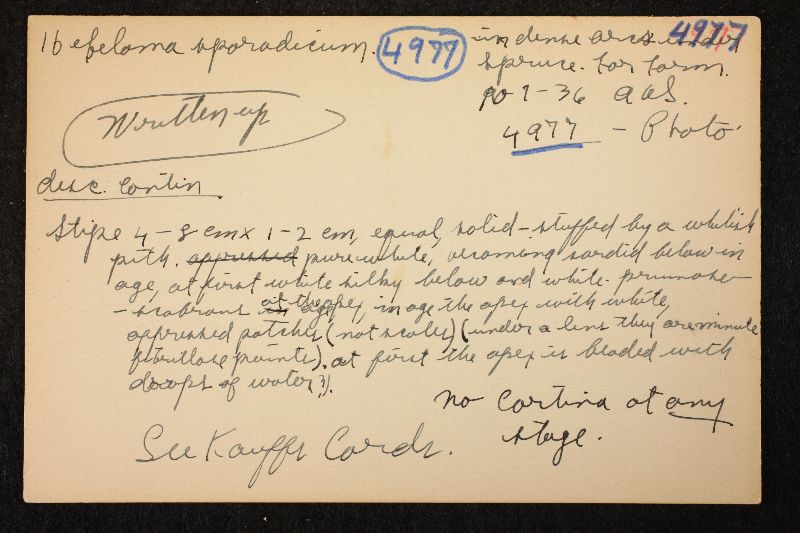 Hebeloma sporadicum. 4977
4977
in dense arcs under
spruce. Tor form.
10-1-36 AHS.
4977 - Photo
Written up
desc. contin
Stipe 4-8 cm x 1-2 cm, equal, solid-stuffed by a whitish
pith, appressed pure white, becoming sordid below in
age, at first white silky below and white-pruinose
-scabrous at the apex, in age the apex with white,
appressed patches (not scales) (under a lens they are minute
fibrillose points). at first the apex is beaded with
drops of water
no cortina at any
stage.
See Kauffs Cards.